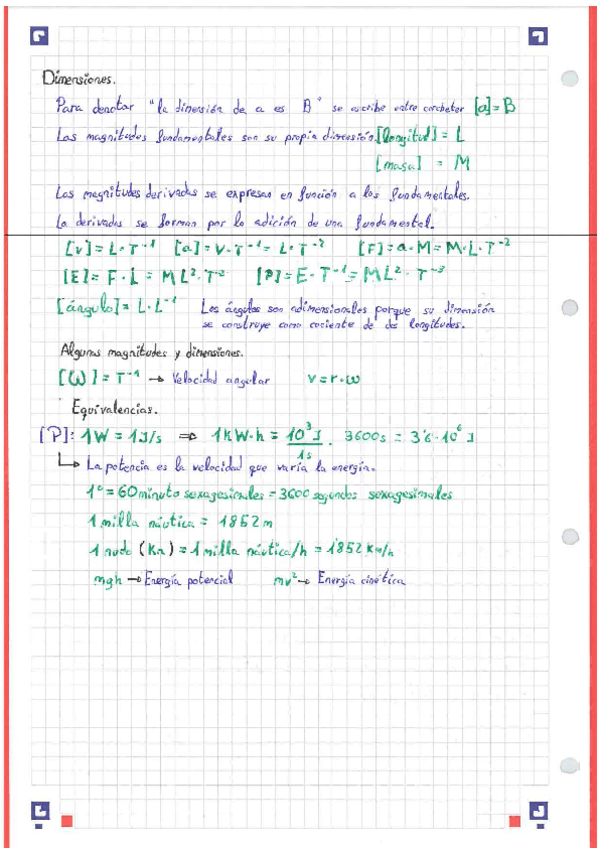 Dimensiones.
Para denotar "la dimensión de a es B" se escribe entre corchetes [a]=B
Las magnitudes fundamentales son su propia dimensión. [longitud] = L
[masa] = M
Las magnitudes derivadas se expresan en función a las fundamentales.
La derivadas se forman por la adición de una fundamental.
[v]= L·T⁻¹ [a]= V·T⁻¹= L·T⁻² [F]= a·M= M·L·T⁻²
[E]= F·L = ML²·T⁻² [P]= E·T⁻¹= ML²·T⁻³
[ángulo]= L·L⁻¹ Los ángulos son adimensionales porque su dimensión
se construye como cociente de dos longitudes.
Algunas magnitudes y dimensiones.
[ω]= T⁻¹ → Velocidad angular v=r·ω
Equivalencias.
[P]: 1W = 1J/s ⇒ 1kW·h = 10³J/1s · 3600s = 3'6·10⁶J
↳ La potencia es la velocidad que varía la energía.
1º = 60 minuto sexagesimales = 3600 segundos sexagesimales
1 milla náutica = 1852 m
1 nudo (Kn) = 1 milla náutica/h = 1'852 Km/h
mgh → Energía potencial mv² → Energía cinética